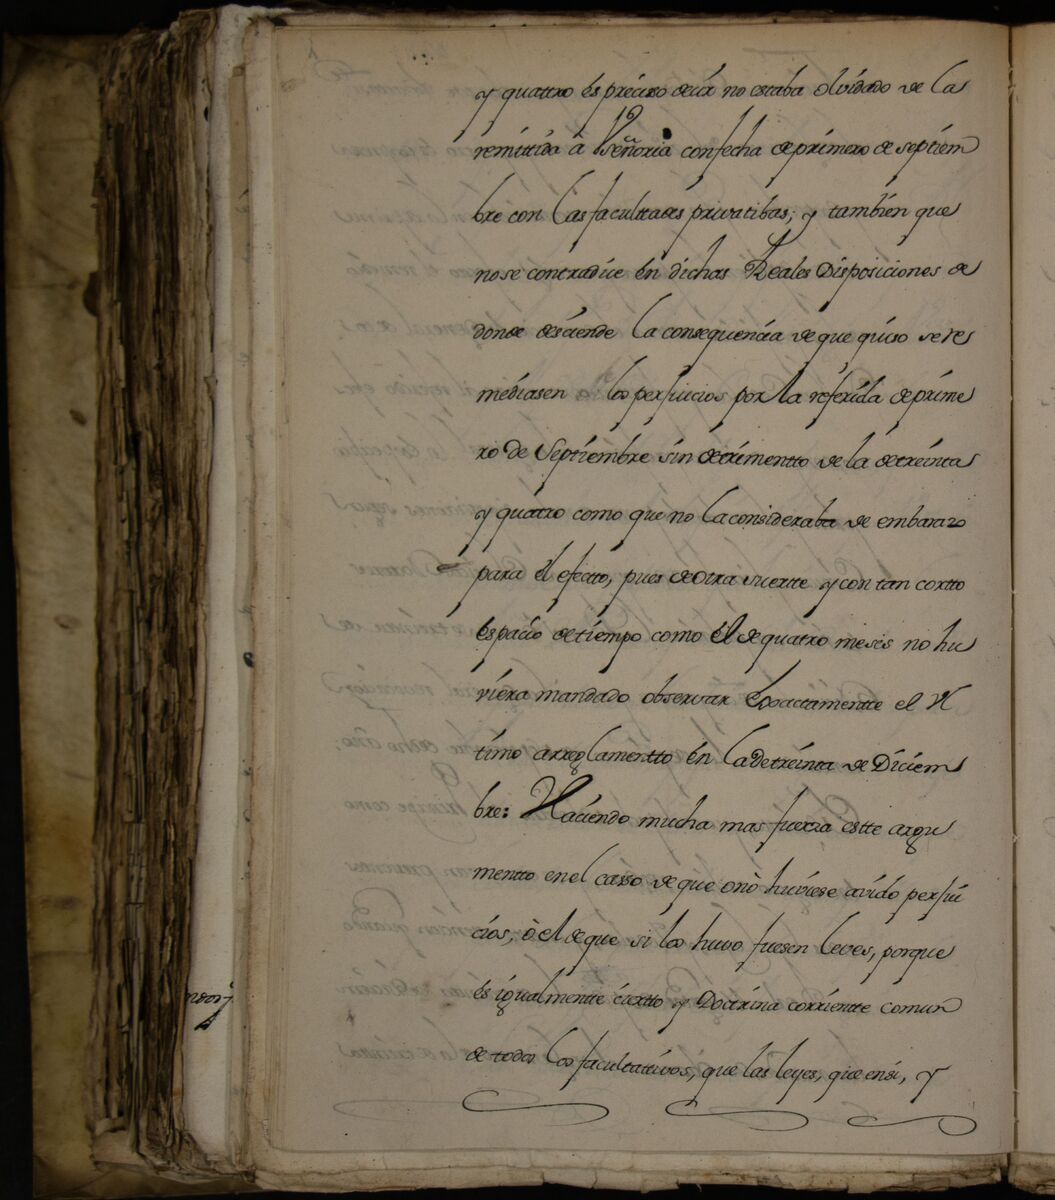 y quattro és preciso decir no estaba olvidado de la
remitida â Vseñoria confecha de primero de septiem
bre con las facultades privatibas; y tambien que
nose contradice én dichas Reales Disposiciones de
donde desciende la consequencia de que quiso se re
mediasen los perjuicios por la referida de prime
ro de Septiembre sin detrimentto de la de treinta
y quatro como que no la consideraba de embarazo
para él efectto, pues de otra suerte y con tan cortto
éspacio de tiempo como él de quatro meses no hu
viera mandado observar Exactamentte el Vl
timo arreglamentto én la de treinta de Diciem
bre: Haciendo mucha mas fuerza estte argu
mentto en el casso de que ò nò huviese avido perjui
cios, ò el de que si los huvo fuesen leves, porque
és igualmentte ciertto y Doctrina corrientte comun
de todos los facultativos, que las leyes, que ensi, y